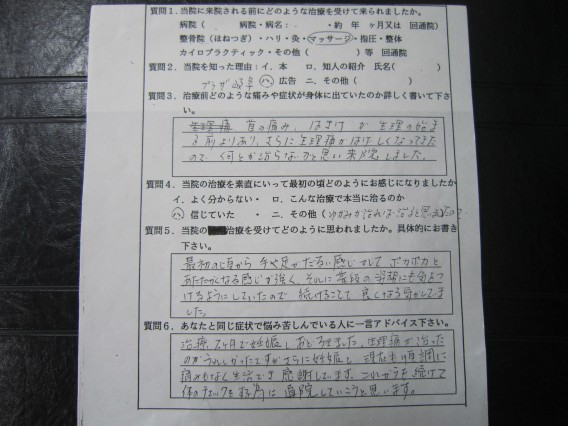 質問1．当院に来院される前にどのような治療を受けて来られましたか。
病院（　　病院・病名：　　・約　年　ヶ月又は　回通院）
整骨院（ほねつぎ）・ハリ・灸・マッサージ・指圧・整体
カイロプラクティック・その他（　　　）等　回通院
質問2．当院を知った理由：イ．本　ロ．知人の紹介　氏名（　　　）
ハ．広告　ニ．その他（　　　）
質問3．治療前どのような痛みや症状が身体に出ていたのか詳しく書いて下さ
い。
首の痛み、はきけが生理の始ま
る前よりあり、さらに生理痛がはげしくなってきた
ので、何とか治らないかと思い来院しました。
質問4．当院の治療を素直にいって最初の頃どのようにお感じになりましたか
イ．よく分からない・　ロ．こんな治療で本当に治るのか
ハ．信じていた　・　ニ．その他（ゆがみが治れば治ると思ったので
質問5．当院の治療を受けてどのように思われましたか。具体的にお書き
下さい。
最初の頃から手や足がだるい感じがして ポカポカと
あたたかくなる感じが強く、それに普段の姿勢にも気をつ
けるようにしていたので 続けることで 良くなる気がしてま
した。
質問6．あなたと同じ症状で悩み苦しんでいる人に一言アドバイス下さい。
治療、2ヶ月で妊娠し、おどろきました。生理痛が治った
のがうれしかったですがさらに妊娠し、現在も順調に
痛みもなく生活でき 感謝しています。これからも続けて
体のチェックをする為に 通院していこうと思います。